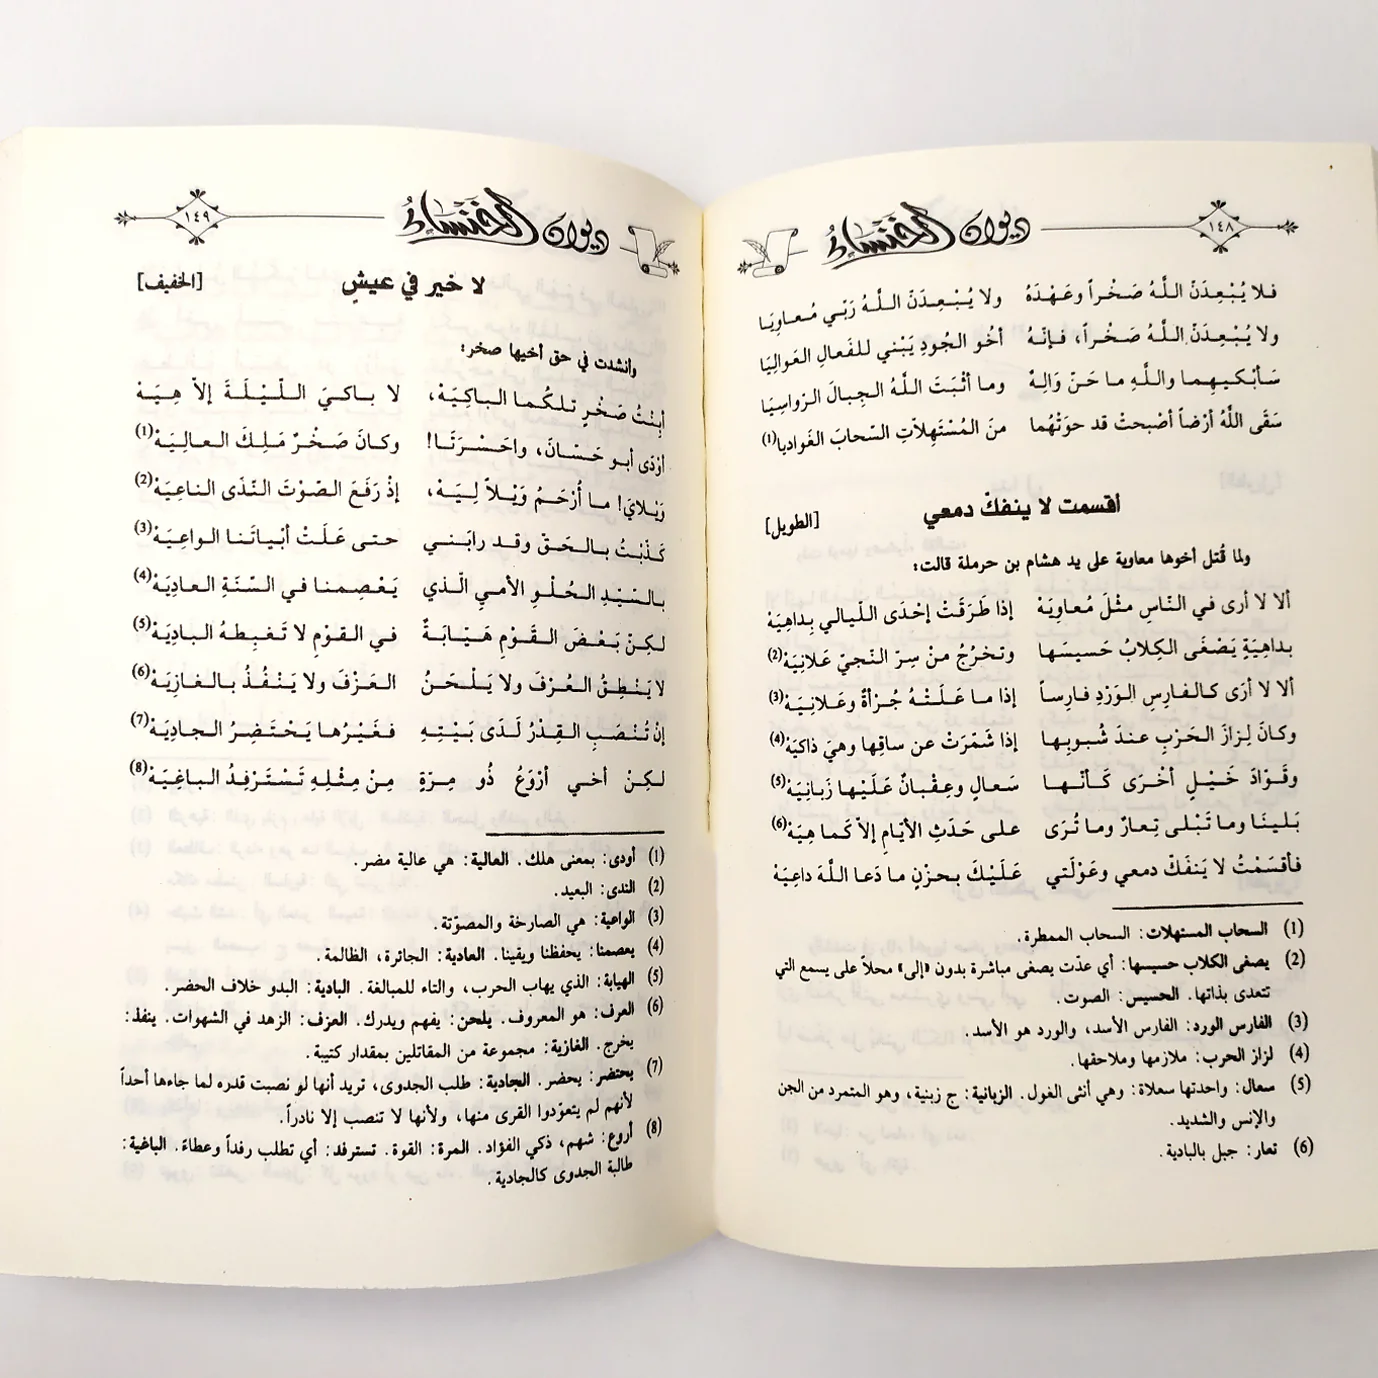 ديوان الخنساء
١٤٨
فلا يُبْعِدَنّ اللهُ صَخْراً وعَهْدَهُ ولا يُبْعِدَنّ اللهُ رَبّي مُعاوِيَا
ولا يُبْعِدَنّ اللَّهُ صَخْراً، فإنّهُ أخُو الجُودِ يَبْني للفَعالِ العَوالِيَا
سَأبْكيهِما واللَّهِ ما حَنّ وَالِهٌ وما أثْبَتَ اللَّهُ الجِبالَ الرّواسِيَا
سَقَى اللَّهُ أرْضاً أصْبحتْ قد حوَتْهُما منَ المُسْتَهِلاّتِ السّحابَ الغَواديا(١)
أقسمت لا ينفكّ دمعي [الطويل]
ولما قُتل أخوها معاوية على يد هشام بن حرملة قالت:
ألا لا أرى في النّاسِ مثْلَ مُعاوِيَهْ إذا طَرَقَتْ إحْدَى اللّيالي بِداهِيَهْ
بداهِيَةٍ يَصْغَى الكِلابُ حَسيسَها وتخرُجُ منْ سِرّ النّجيّ عَلانِيَهْ(2)
ألا لا أرَى كالفارِسِ الوَرْدِ فارِساً إذا ما عَلَتْهُ جُرْأةٌ وعَلانِيَهْ(3)
وكانَ لِزازَ الحَرْبِ عندَ شُبوبِها إذا شَمّرَتْ عن ساقِها وهيَ ذاكيَهْ(4)
وقَوّادَ خَيْلٍ نحْوَ أخْرَى كَأنّها سَعالٍ وعِقْبانٌ عَلَيْها زَبانِيَهْ(5)
بَلينَا وما تَبْلى تِعارٌ وما تُرَى على حَدَثِ الأيّامِ إلاّ كَما هِيَهْ(6)
فأقسَمْتُ لا يَنفَكّ دمعي وعَوْلَتي عَلَيْكَ بحزْنٍ ما دَعا اللَّهَ داعِيَهْ
(1) السحاب المستهلات: السحاب الممطرة.
(2) يصغى الكلاب حسيسها: أي عدّت يصغى مباشرة بدون «إلى» محلاً على يسمع التي
تتعدى بذاتها. الحسيس: الصوت.
(3) الفارس الورد: الفارس الأسد، والورد هو الأسد.
(4) لزاز الحرب: ملازمها وملاحقها.
(5) سعال: واحدتها سعلاة: وهي أنثى الغول. الزبانية: ج زبنية، وهو المتمرد من الجن
والإنس والشديد.
(6) تعار: جبل بالبادية.
ديوان الخنساء
١٤٩
لا خير في عيشٍ [الخفيف]
وأنشدت في حق أخيها صخر:
أبِنْتُ صَخْرٍ تلكُما الباكِيَهْ، لا باكيَ اللّيْلَةَ إلاّ هِيَهْ
أوْدَى أبو حَسّانَ، واحَسْرَتَا! وكانَ صَخْرٌ مَلِكَ العالِيَهْ(1)
وَيْلايَ! ما أُرْحَمُ وَيْلاً لِيَهْ، إذْ رَفَعَ الصّوْتَ النّدَى الناعِيَهْ(2)
كَذّبْتُ بالحَقّ وقد رابَني حتى عَلَتْ أبْياتَنا الواعِيَهْ(3)
بالسّيّدِ الحُلْوِ الأمي‍نِ الّذي يَعْصِمنا في السّنَةِ العادِيَهْ(4)
لكِنْ بَعْضَ القَوْمِ هَيّابَةٌ في القوْمِ لا تَغبِطهُ البادِيَهْ(5)
لا يَنْطِقُ العُرْفَ ولا يَلْحَنُ العَزْفَ ولا يَنْفُذُ بالغازِيَهْ(6)
إنْ تُنْصَبِ القِدْرُ لَدَى بَيْتِهِ فغَيْرُها يَحْتَضِرُ الجادِيَهْ(7)
لكِنْ أخي أرْوَعُ ذُو مِرّةٍ مِنْ مِثْلِهِ تَسْتَرْفِدُ الباغِيَهْ(8)
(1) أودى: بمعنى هلك. العالية: هي عالية مضر.
(2) الندى: البعيد.
(3) الواعية: هي الصارخة والمصوّتة.
(4) يعصمنا: يحفظنا ويقينا. العادية: الجائرة، الظالمة.
(5) الهيابة: الذي يهاب الحرب، والتاء للمبالغة. البادية: البدو خلاف الحضر.
(6) العرف: هو المعروف. يلحن: يفهم ويدرك. العزف: الزهد في الشهوات. ينفذ:
يخرج. الغازية: مجموعة من المقاتلين بمقدار كتيبة.
(7) يحتضر: يحضر. الجادية: طلب الجدوى، تريد أنها لو نصبت قدره لما جاءها أحداً
لأنهم لم يتعوّدوا القرى منها، ولأنها لا تنصب إلا نادراً.
(8) أروع: شهم، ذكي الفؤاد. المرة: القوة. تسترفد: أي تطلب رفداً وعطاءً. الباغية:
طالبة الجدوى كالجادية.